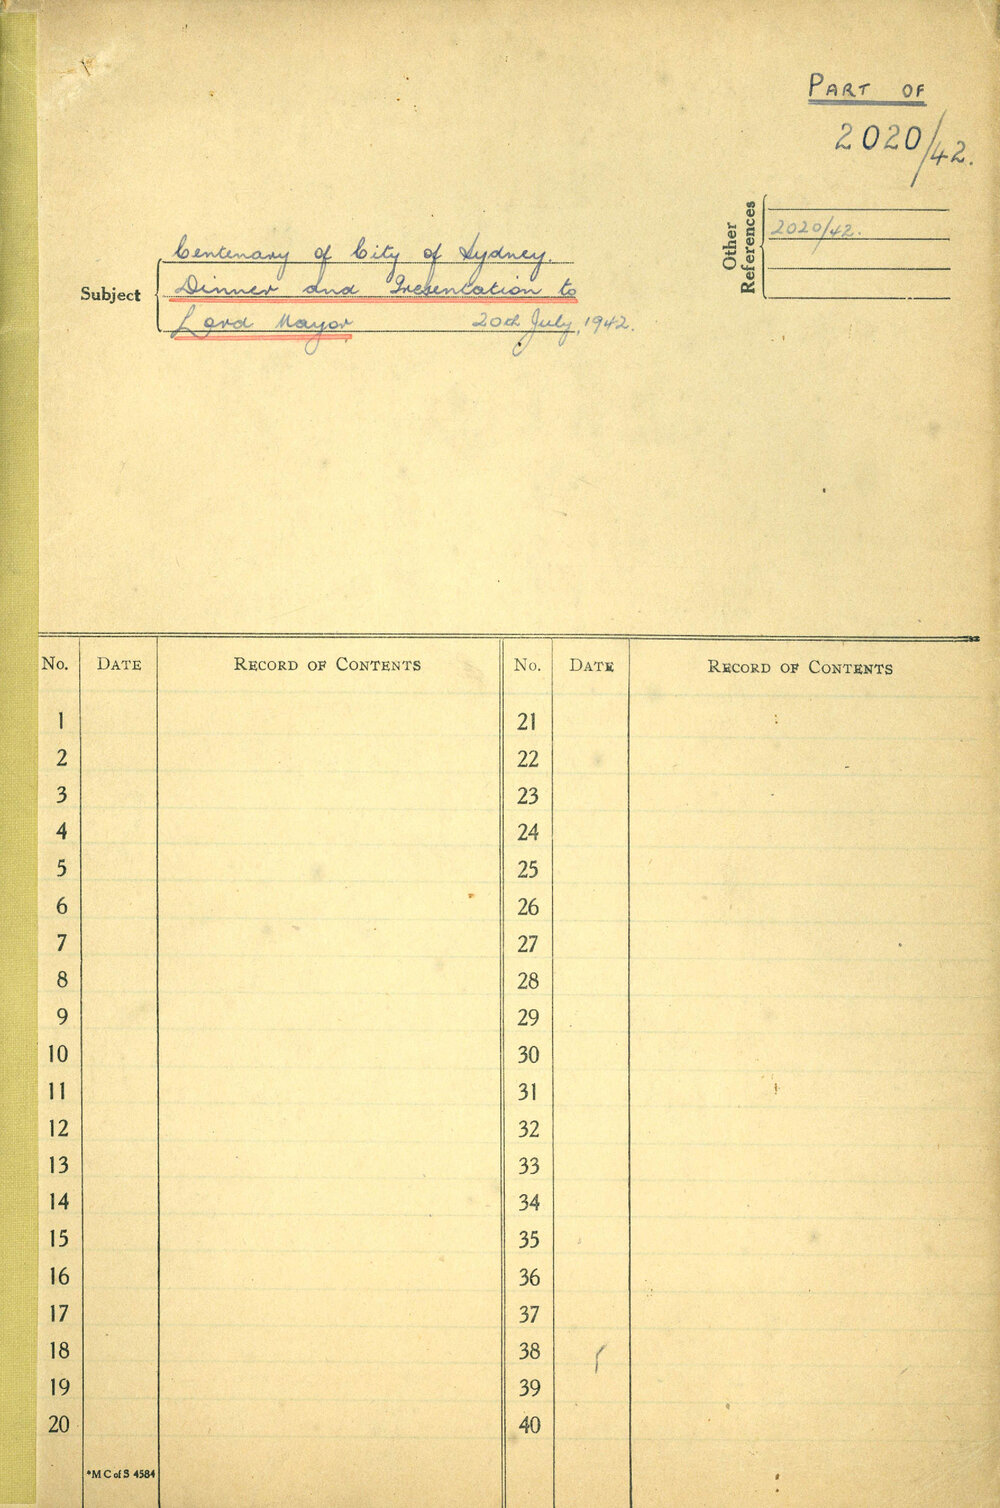 PART OF
2020/42.
Other
References
2020/42.
Subject
Centenary of City of Sydney.
Dinner and Presentation to
Lord Mayor 20th July, 1942.
No. DATE RECORD OF CONTENTS No. DATE RECORD OF CONTENTS
1 21
2 22
3 23
4 24
5 25
6 26
7 27
8 28
9 29
10 30
11 31
12 32
13 33
14 34
15 35
16 36
17 37
18 38
19 39
20 40
*M C of S 4584